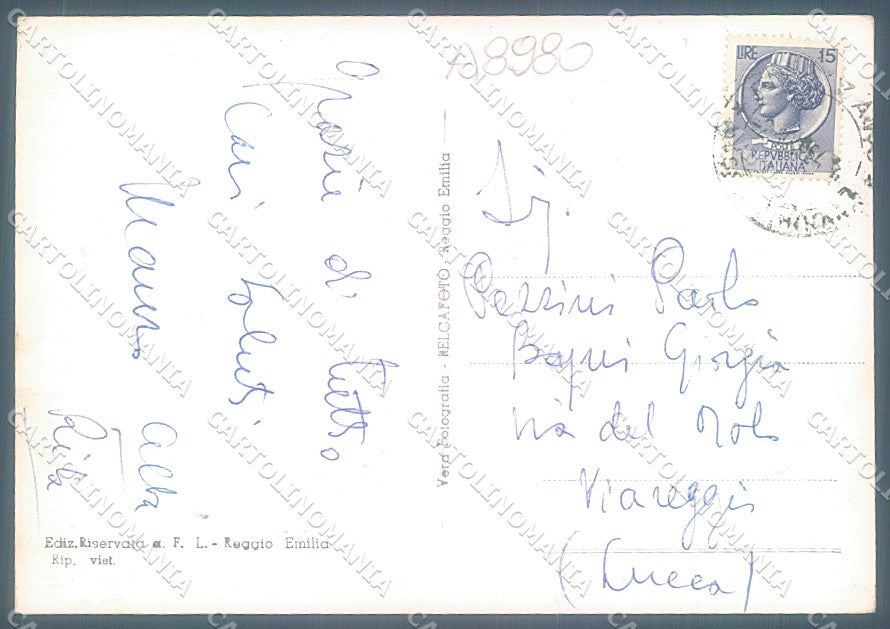 A8980
LIRE 15
POSTE
REPVBBLICA
ITALIANA
Grazie di tutto
Cari saluti
Mauro Alba
Rita
Vera Fotografia - BELCAFOTO - Reggio Emilia
Sig.
Pezzini Paolo
Bagni Giorgia
via del Molo
Viareggio
(Lucca)
Ediz. Riservata a. F. L. - Reggio Emilia
Rip. viet.
CARTOLINOMANIA